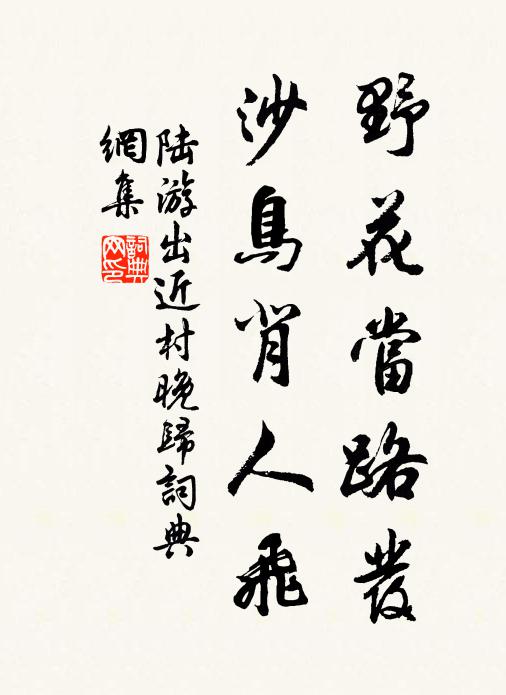 野花當路發
沙鳥背人飛
陆游出近村晚歸詞典
網集
詞典网印